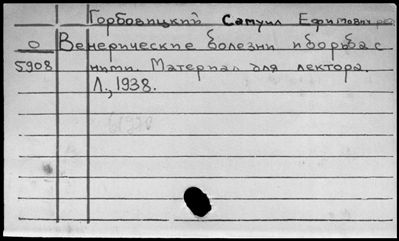 Горбовицкий Самуил Ефимович
О Венерические болезни и борьба с
5908 ними. Материал для лектора.
Л., 1938.